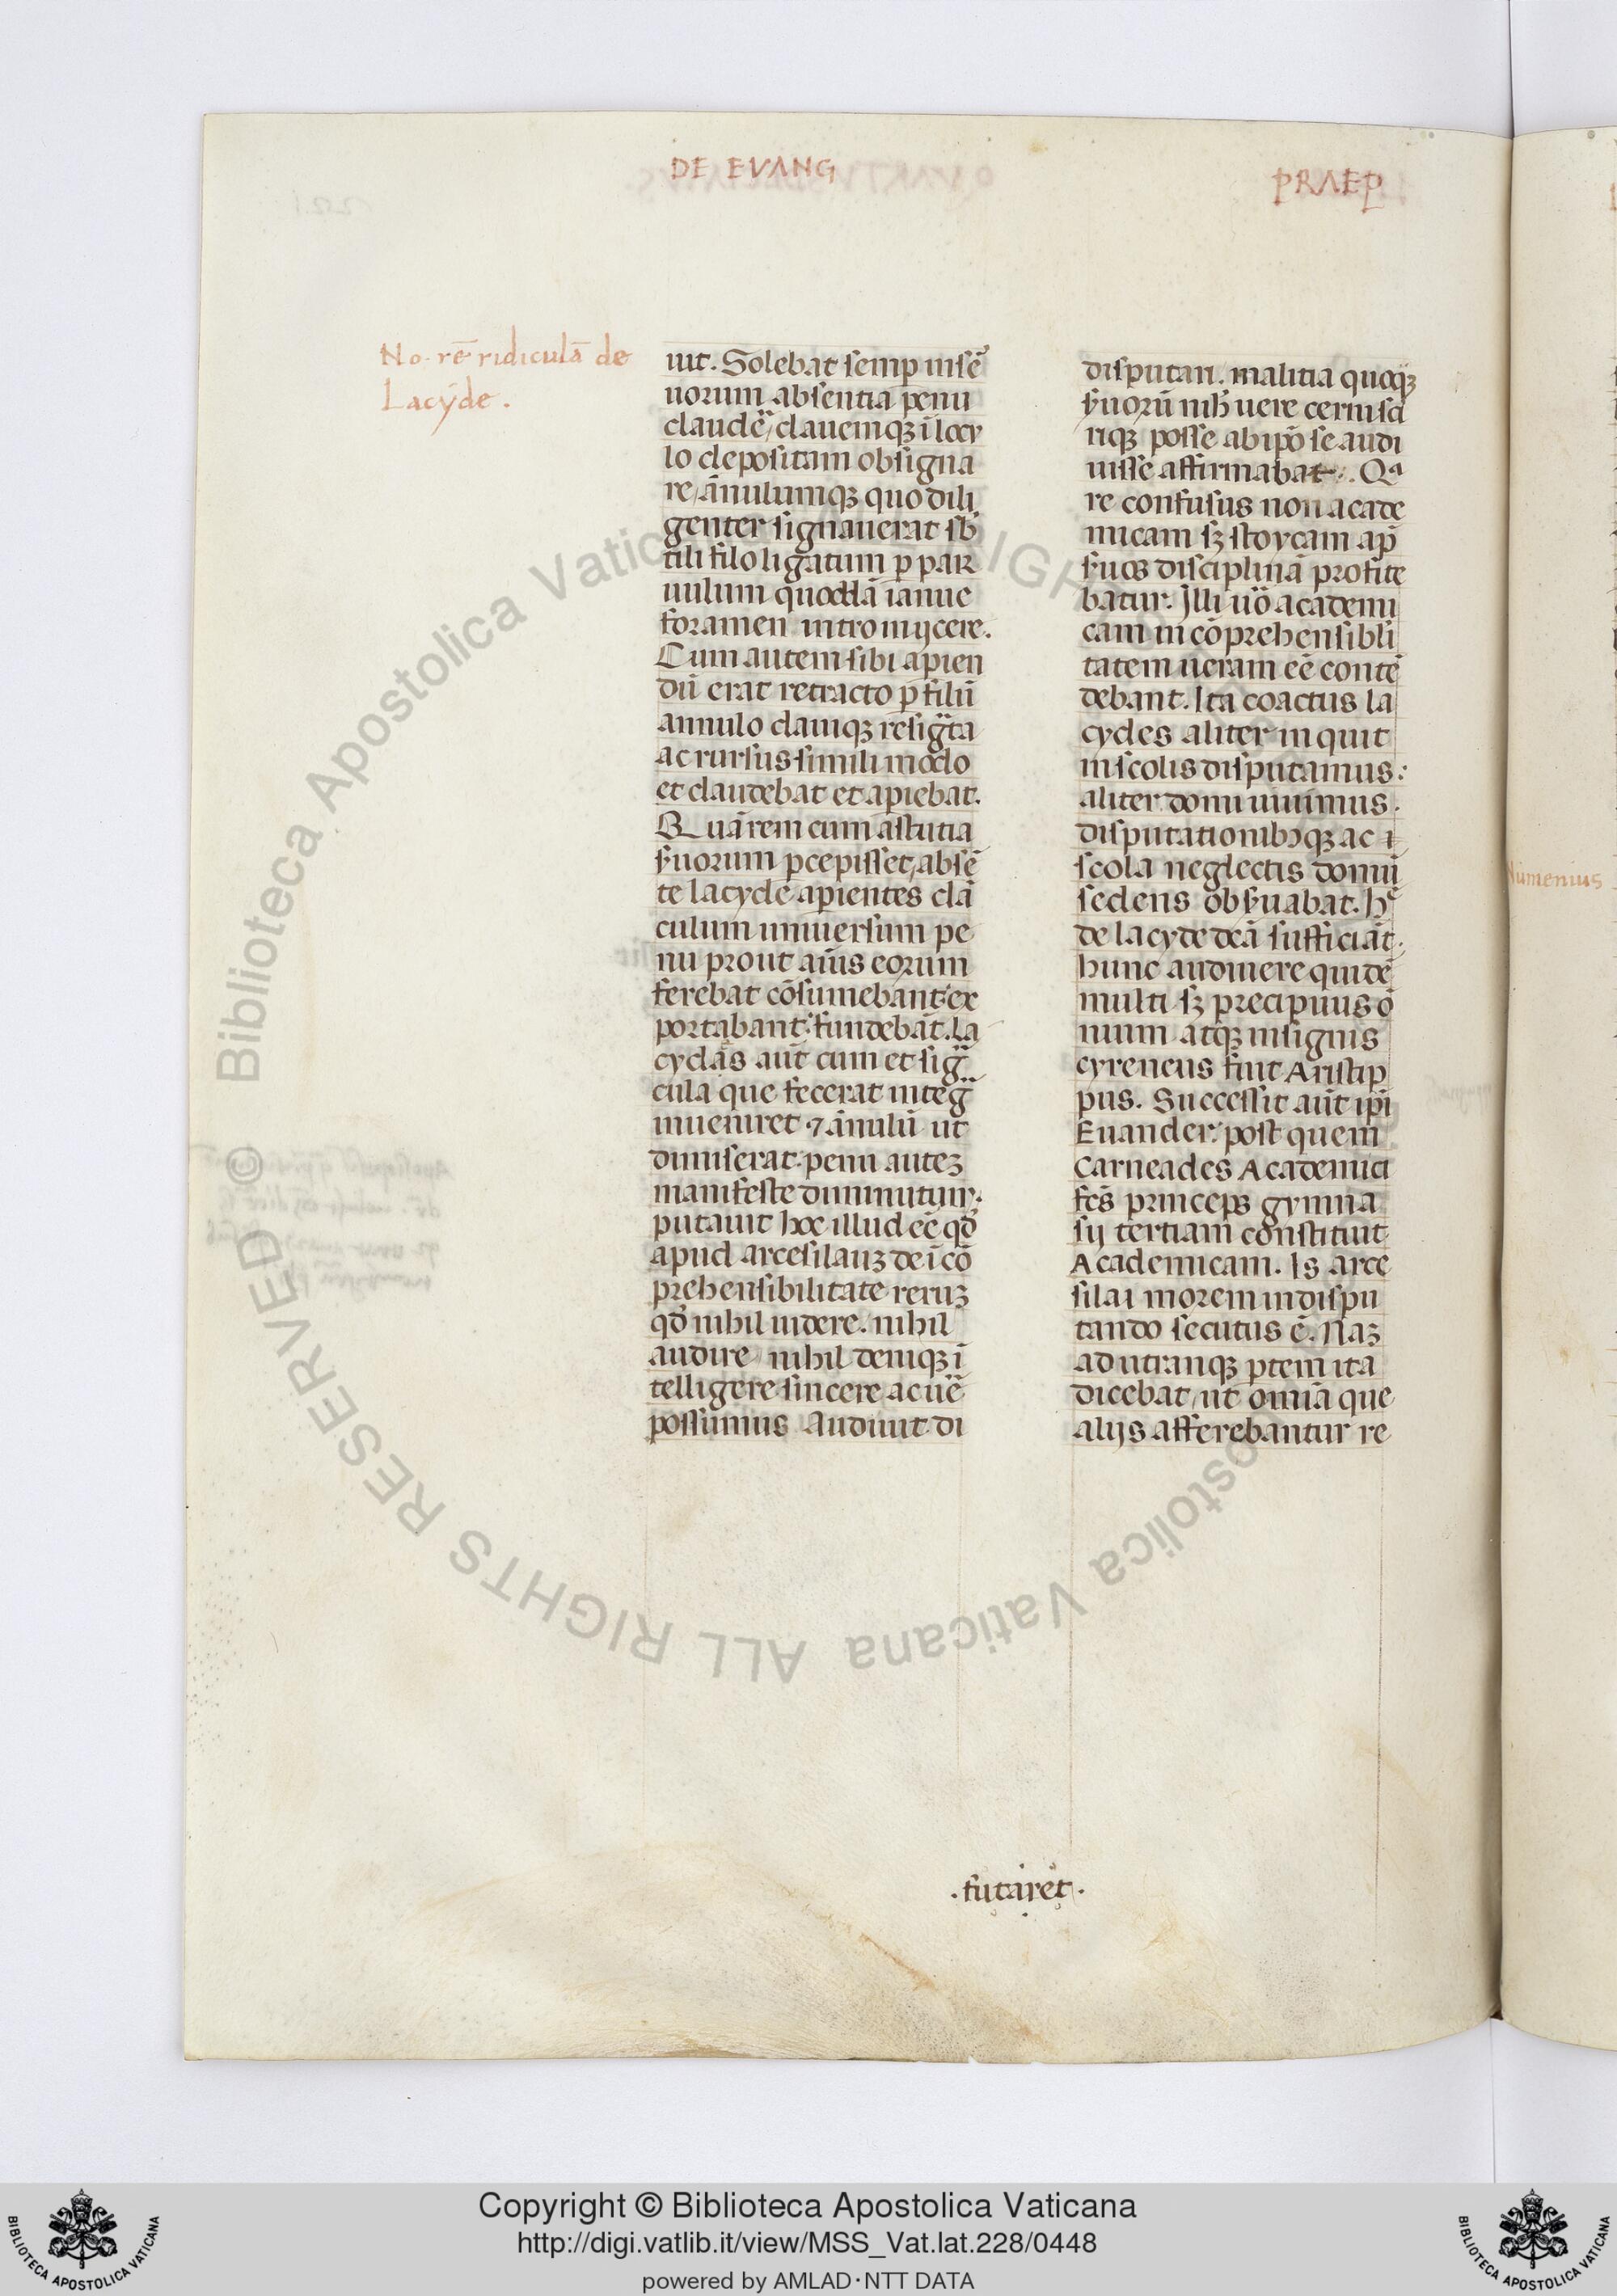 DE EVANG
PRAEP
No. rē ridiculā de
Lacyde.
uit. Solebat semp in sẽ
uorum absentia penu
claudẽ, clauemq; ĩ locu
lo depositam obsigna
re, ãnulumq; quo dili
genter signauerat sb
tili filo ligatum p par
uulum quoddã ianue
foramen intromijcere.
Cum autem sibi apien
dũ erat retracto p filũ
annulo clauiq; resigta
ac rursus simili modo
et claudebat et apiebat.
Quã rem cum astutia
suorum pcepisset, absẽ
te lacyde apientes clã
culum uniuersum pe
nu prout aius eorum
ferebat cõsumebant: ex
portabant: fundebãt. la
cydas aũt cum et sig
cula que fecerat integ
inueniret ⁊ ãnulũ ut
dimiserat: penu autez
manifeste diminutum:
putauit hoc illud eẽ qđ
apud arcesilauz de ĩcõ
prehensibilitate reruz
qđ nihil uidere. nihil
audire nihil deniq; ĩ
telligere sincere ac uẽ
possumus audiuit di
disputari. malitia quoq;
suorũ nih uere cerni sci
riq; posse ab ipo se audi
uisse affirmabat. Qa
re confusus non acade
micam sz stoycam ap
suos disciplinã profite
batur. Illi uo academi
cam incõprehensibli
tatem ueram eẽ contẽ
debant. Ita coactus la
cydes aliter inquit
in scolis disputamus:
aliter domi uiuimus.
disputationibꝰq; ac ĩ
scola neglectis domi
sedens obsuabat. hc
de lacyde dcã sufficiãt.
hunc audiuere quidẽ
multi sz precipuus õ
nium atq; insignis
cyreneus fuit Aristip
pus. Successit aũt ipi
Euander: post quem
Carneades Academici
fcs princeps gymna
sij tertiam constituit
Academicam. Is arce
silai morem in dispu
tando secutus ẽ. Naz
ad utranq; ptem ita
dicebat, ut omia que
alijs afferebantur re
.futaret.
Numenius
Copyright © Biblioteca Apostolica Vaticana
http://digi.vatlib.it/view/MSS_Vat.lat.228/0448
powered by AMLAD · NTT DATA
BIBLIOTECA APOSTOLICA VATICANA
BIBLIOTECA APOSTOLICA VATICANA